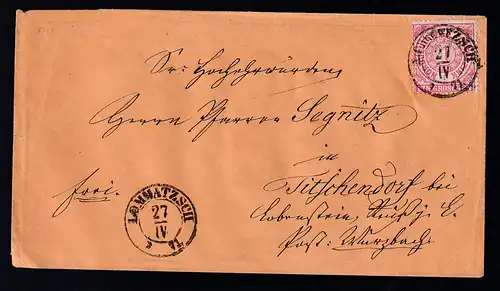 LOMMATZSCH
27
IV
71
GROSCHEN
Sr: Hochehrwürden,
Herrn Pfarrer Segnitz
in
frei.
Titschendorf bei
Lobenstein, Reuß j. L.
Post: Wurzbach.
LOMMATZSCH
27
IV
71